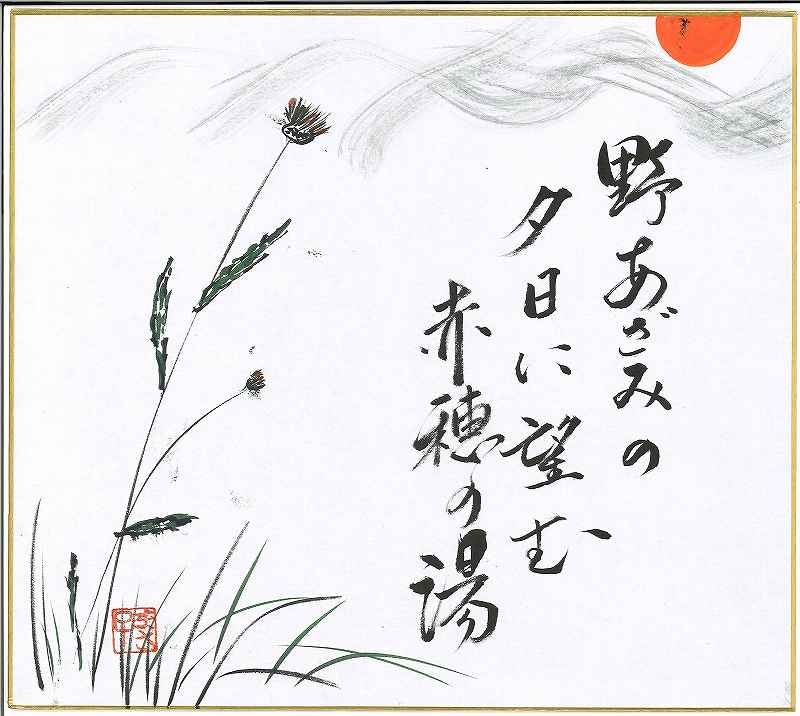 野あざみの
夕日に望む
赤穂の湯